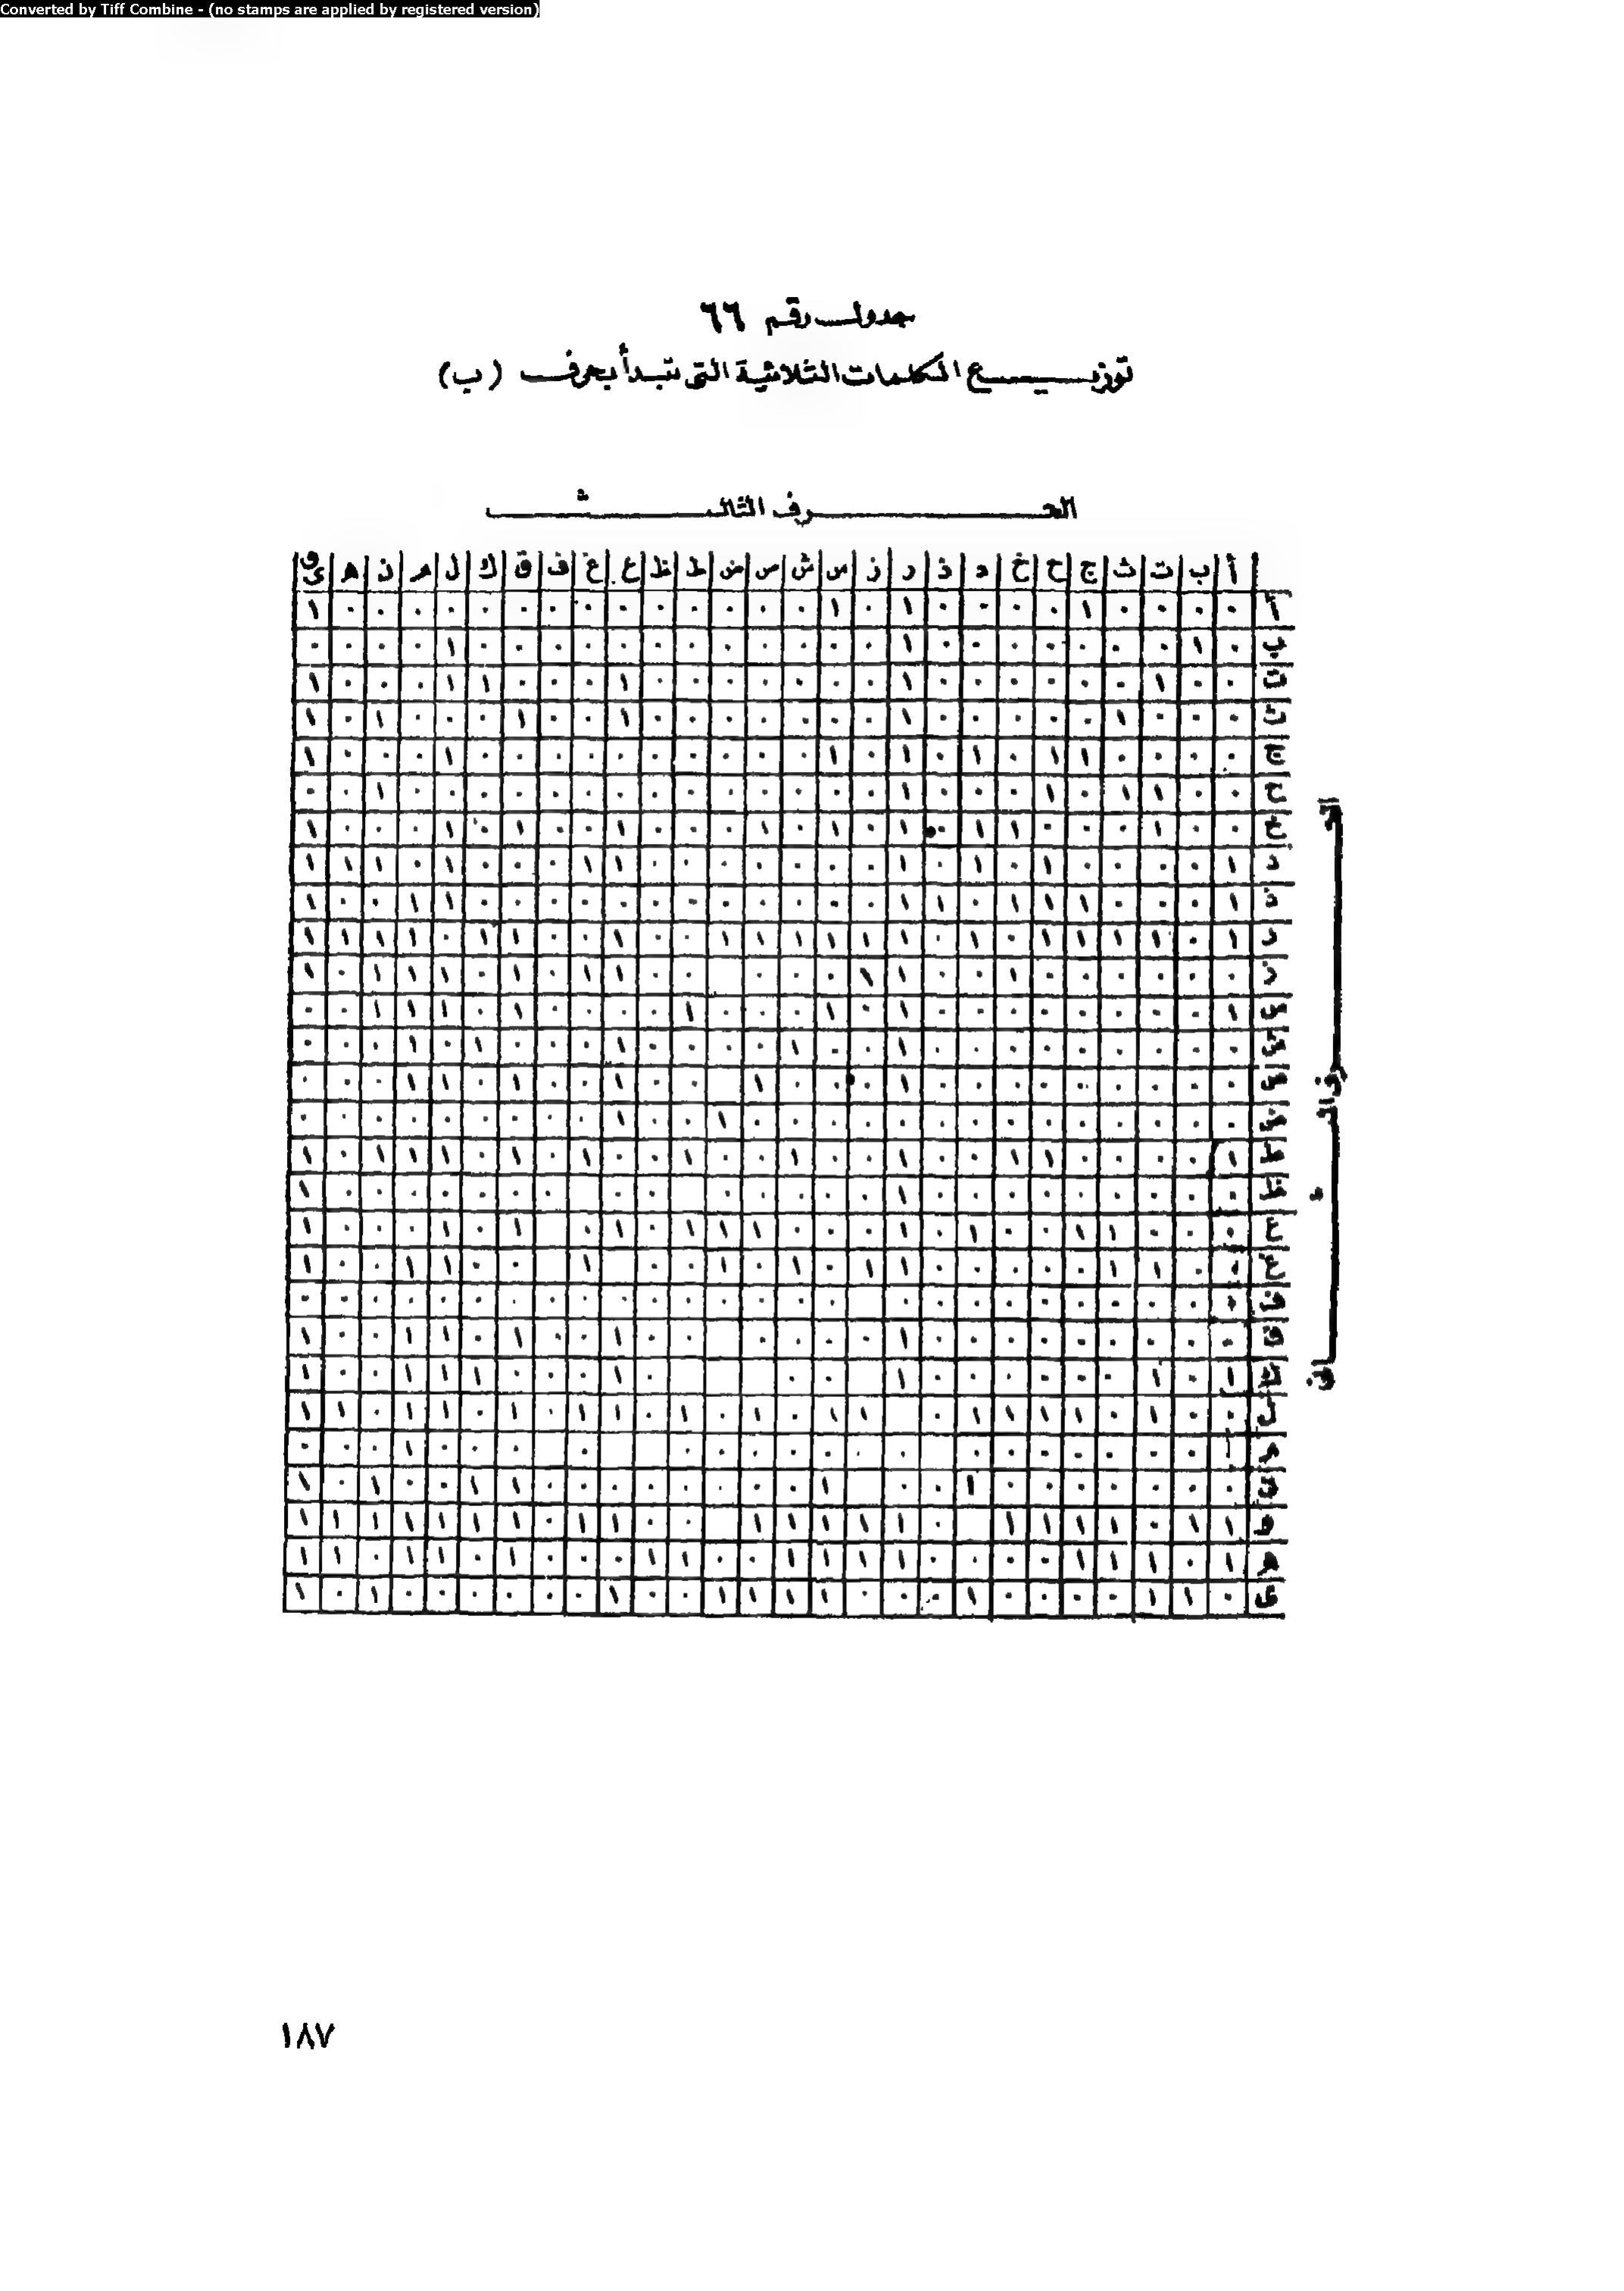 Converted by Tiff Combine - (no stamps are applied by registered version)
جدول رقم ٦٦
توزيع الكلمات الثلاثية التى تبدأ بحرف (ب)
الحرف الثالث
أ ب ت ث ج ح خ د ذ ر ز س ش ص ض ط ظ ع غ ف ق ك ل م ن ه وى
الحرف الثانى
أ ٠ ٠ ٠ ٠ ١ ٠ ٠ ٠ ٠ ١ ٠ ١ ٠ ٠ ٠ ٠ ٠ ٠ ٠ ٠ ٠ ٠ ٠ ٠ ٠ ٠ ١
ب ٠ ١ ٠ ٠ ٠ ٠ ٠ ٠ ٠ ١ ٠ ٠ ٠ ٠ ٠ ٠ ٠ ٠ ٠ ٠ ٠ ٠ ١ ٠ ٠ ٠ ٠
ت ٠ ٠ ١ ٠ ٠ ٠ ٠ ٠ ٠ ١ ٠ ٠ ٠ ٠ ٠ ٠ ٠ ١ ٠ ٠ ٠ ١ ١ ٠ ٠ ٠ ١
ث ٠ ٠ ٠ ١ ٠ ٠ ٠ ٠ ٠ ١ ٠ ٠ ٠ ٠ ٠ ٠ ٠ ١ ٠ ٠ ١ ٠ ٠ ٠ ١ ٠ ١
ج ٠ ٠ ٠ ٠ ١ ١ ٠ ١ ٠ ١ ٠ ١ ٠ ٠ ٠ ٠ ٠ ٠ ٠ ٠ ٠ ٠ ١ ٠ ٠ ٠ ١
ح ٠ ٠ ١ ١ ٠ ١ ٠ ٠ ٠ ١ ٠ ٠ ٠ ٠ ٠ ٠ ٠ ٠ ٠ ٠ ٠ ٠ ٠ ٠ ١ ٠ ٠
خ ٠ ٠ ١ ٠ ٠ ٠ ١ ١ ٠ ١ ٠ ١ ٠ ١ ٠ ٠ ٠ ١ ٠ ٠ ١ ٠ ١ ٠ ٠ ٠ ١
د ١ ٠ ٠ ٠ ٠ ١ ٠ ١ ٠ ١ ٠ ٠ ٠ ٠ ٠ ٠ ٠ ١ ١ ٠ ٠ ٠ ١ ٠ ١ ١ ١
ذ ١ ٠ ٠ ٠ ١ ١ ١ ٠ ١ ١ ٠ ٠ ٠ ٠ ٠ ٠ ٠ ٠ ٠ ٠ ٠ ٠ ١ ١ ٠ ٠ ١
ر ١ ٠ ١ ١ ١ ١ ٠ ١ ٠ ١ ١ ١ ١ ١ ١ ٠ ٠ ١ ٠ ٠ ١ ١ ٠ ١ ١ ١ ١
ز ٠ ٠ ٠ ٠ ٠ ٠ ١ ٠ ٠ ١ ١ ٠ ٠ ٠ ٠ ٠ ١ ١ ٠ ١ ٠ ١ ١ ١ ٠ ١
س ١ ٠ ٠ ٠ ٠ ٠ ٠ ٠ ٠ ١ ٠ ١ ٠ ٠ ٠ ١ ٠ ٠ ٠ ٠ ١ ٠ ١ ١ ١ ٠ ٠
ش ٠ ٠ ٠ ٠ ٠ ٠ ٠ ٠ ٠ ١ ٠ ٠ ١ ٠ ٠ ٠ ٠ ١ ٠ ٠ ٠ ١ ٠ ١ ٠ ٠ ٠
ص ٠ ٠ ٠ ٠ ٠ ٠ ٠ ٠ ٠ ١ ٠ ٠ ٠ ١ ٠ ٠ ١ ٠ ٠ ١ ٠ ١ ١ ٠ ٠ ٠
ض ٠ ٠ ٠ ٠ ٠ ٠ ٠ ٠ ٠ ٠ ٠ ٠ ٠ ٠ ١ ٠ ٠ ١ ٠ ٠ ٠ ٠ ٠ ٠ ٠ ٠ ٠
ط ١ ٠ ٠ ٠ ٠ ١ ١ ٠ ٠ ١ ٠ ٠ ١ ٠ ٠ ١ ٠ ٠ ١ ٠ ١ ٠ ١ ١ ١ ٠ ١
ظ ٠ ٠ ٠ ٠ ٠ ٠ ٠ ٠ ٠ ١ ٠ ٠ ٠ ٠ ٠ ٠ ٠ ٠ ٠ ٠ ٠ ٠ ٠ ٠ ١
ع ٠ ٠ ٠ ١ ١ ٠ ٠ ١ ٠ ١ ٠ ٠ ٠ ١ ١ ١ ٠ ١ ٠ ١ ٠ ١ ٠ ٠ ٠ ١
غ ٠ ٠ ١ ١ ٠ ٠ ٠ ٠ ٠ ١ ١ ٠ ١ ٠ ١ ٠ ٠ ١ ٠ ٠ ١ ١ ٠ ٠ ١
ف ٠ ٠ ٠ ٠ ٠ ٠ ٠ ٠ ٠ ٠ ٠ ٠ ٠ ٠ ٠ ٠ ٠ ٠ ٠ ٠ ٠ ٠ ٠ ٠ ٠ ٠
ق ٠ ٠ ٠ ٠ ٠ ٠ ٠ ٠ ٠ ١ ٠ ٠ ٠ ٠ ٠ ٠ ١ ٠ ٠ ١ ٠ ١ ١ ٠ ٠ ١
ك ١ ٠ ١ ٠ ٠ ٠ ٠ ٠ ٠ ١ ٠ ٠ ٠ ١ ٠ ٠ ٠ ١ ١ ١ ٠ ٠ ١
ل ٠ ٠ ١ ٠ ١ ١ ١ ١ ٠ ١ ١ ٠ ١ ٠ ١ ٠ ١ ١ ٠ ١ ٠ ١ ١ ٠ ١ ١
م ٠ ٠ ٠ ٠ ٠ ٠ ٠ ٠ ٠ ٠ ٠ ٠ ٠ ٠ ٠ ٠ ٠ ٠ ٠ ١ ٠ ٠ ٠
ن ٠ ٠ ٠ ٠ ٠ ٠ ٠ ١ ٠ ٠ ١ ٠ ٠ ٠ ٠ ٠ ٠ ٠ ٠ ١ ١ ٠ ٠ ١ ٠ ١
و ١ ١ ٠ ١ ١ ١ ١ ٠ ١ ١ ١ ١ ١ ٠ ٠ ١ ١ ٠ ١ ١ ١ ١ ١ ١ ١
ه ١ ٠ ١ ١ ١ ٠ ٠ ٠ ٠ ١ ١ ١ ١ ٠ ٠ ١ ١ ٠ ٠ ٠ ١ ٠ ١ ١ ٠ ١ ١
ى ٠ ١ ١ ٠ ٠ ٠ ٠ ١ ٠ ٠ ٠ ١ ١ ١ ١ ٠ ٠ ١ ٠ ٠ ٠ ٠ ٠ ٠ ١ ٠ ١
١٨٧